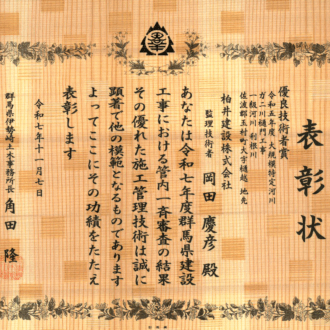 表彰状
優良技術者賞
令和五年度 大規模特定河川
ガ二川樋門工事
一級河川 利根川
佐波郡玉村町大字樋越 地先
柏井建設株式会社
監理技術者 岡田慶彦殿
あなたは令和七年度群馬県建設
工事における管内一斉審査の結果
その優れた施工管理技術は誠に
顕著で他の模範となるものであります
よってここにその功績をたたえ
表彰します
令和七年十一月七日
群馬県伊勢崎土木事務所長 角田 隆